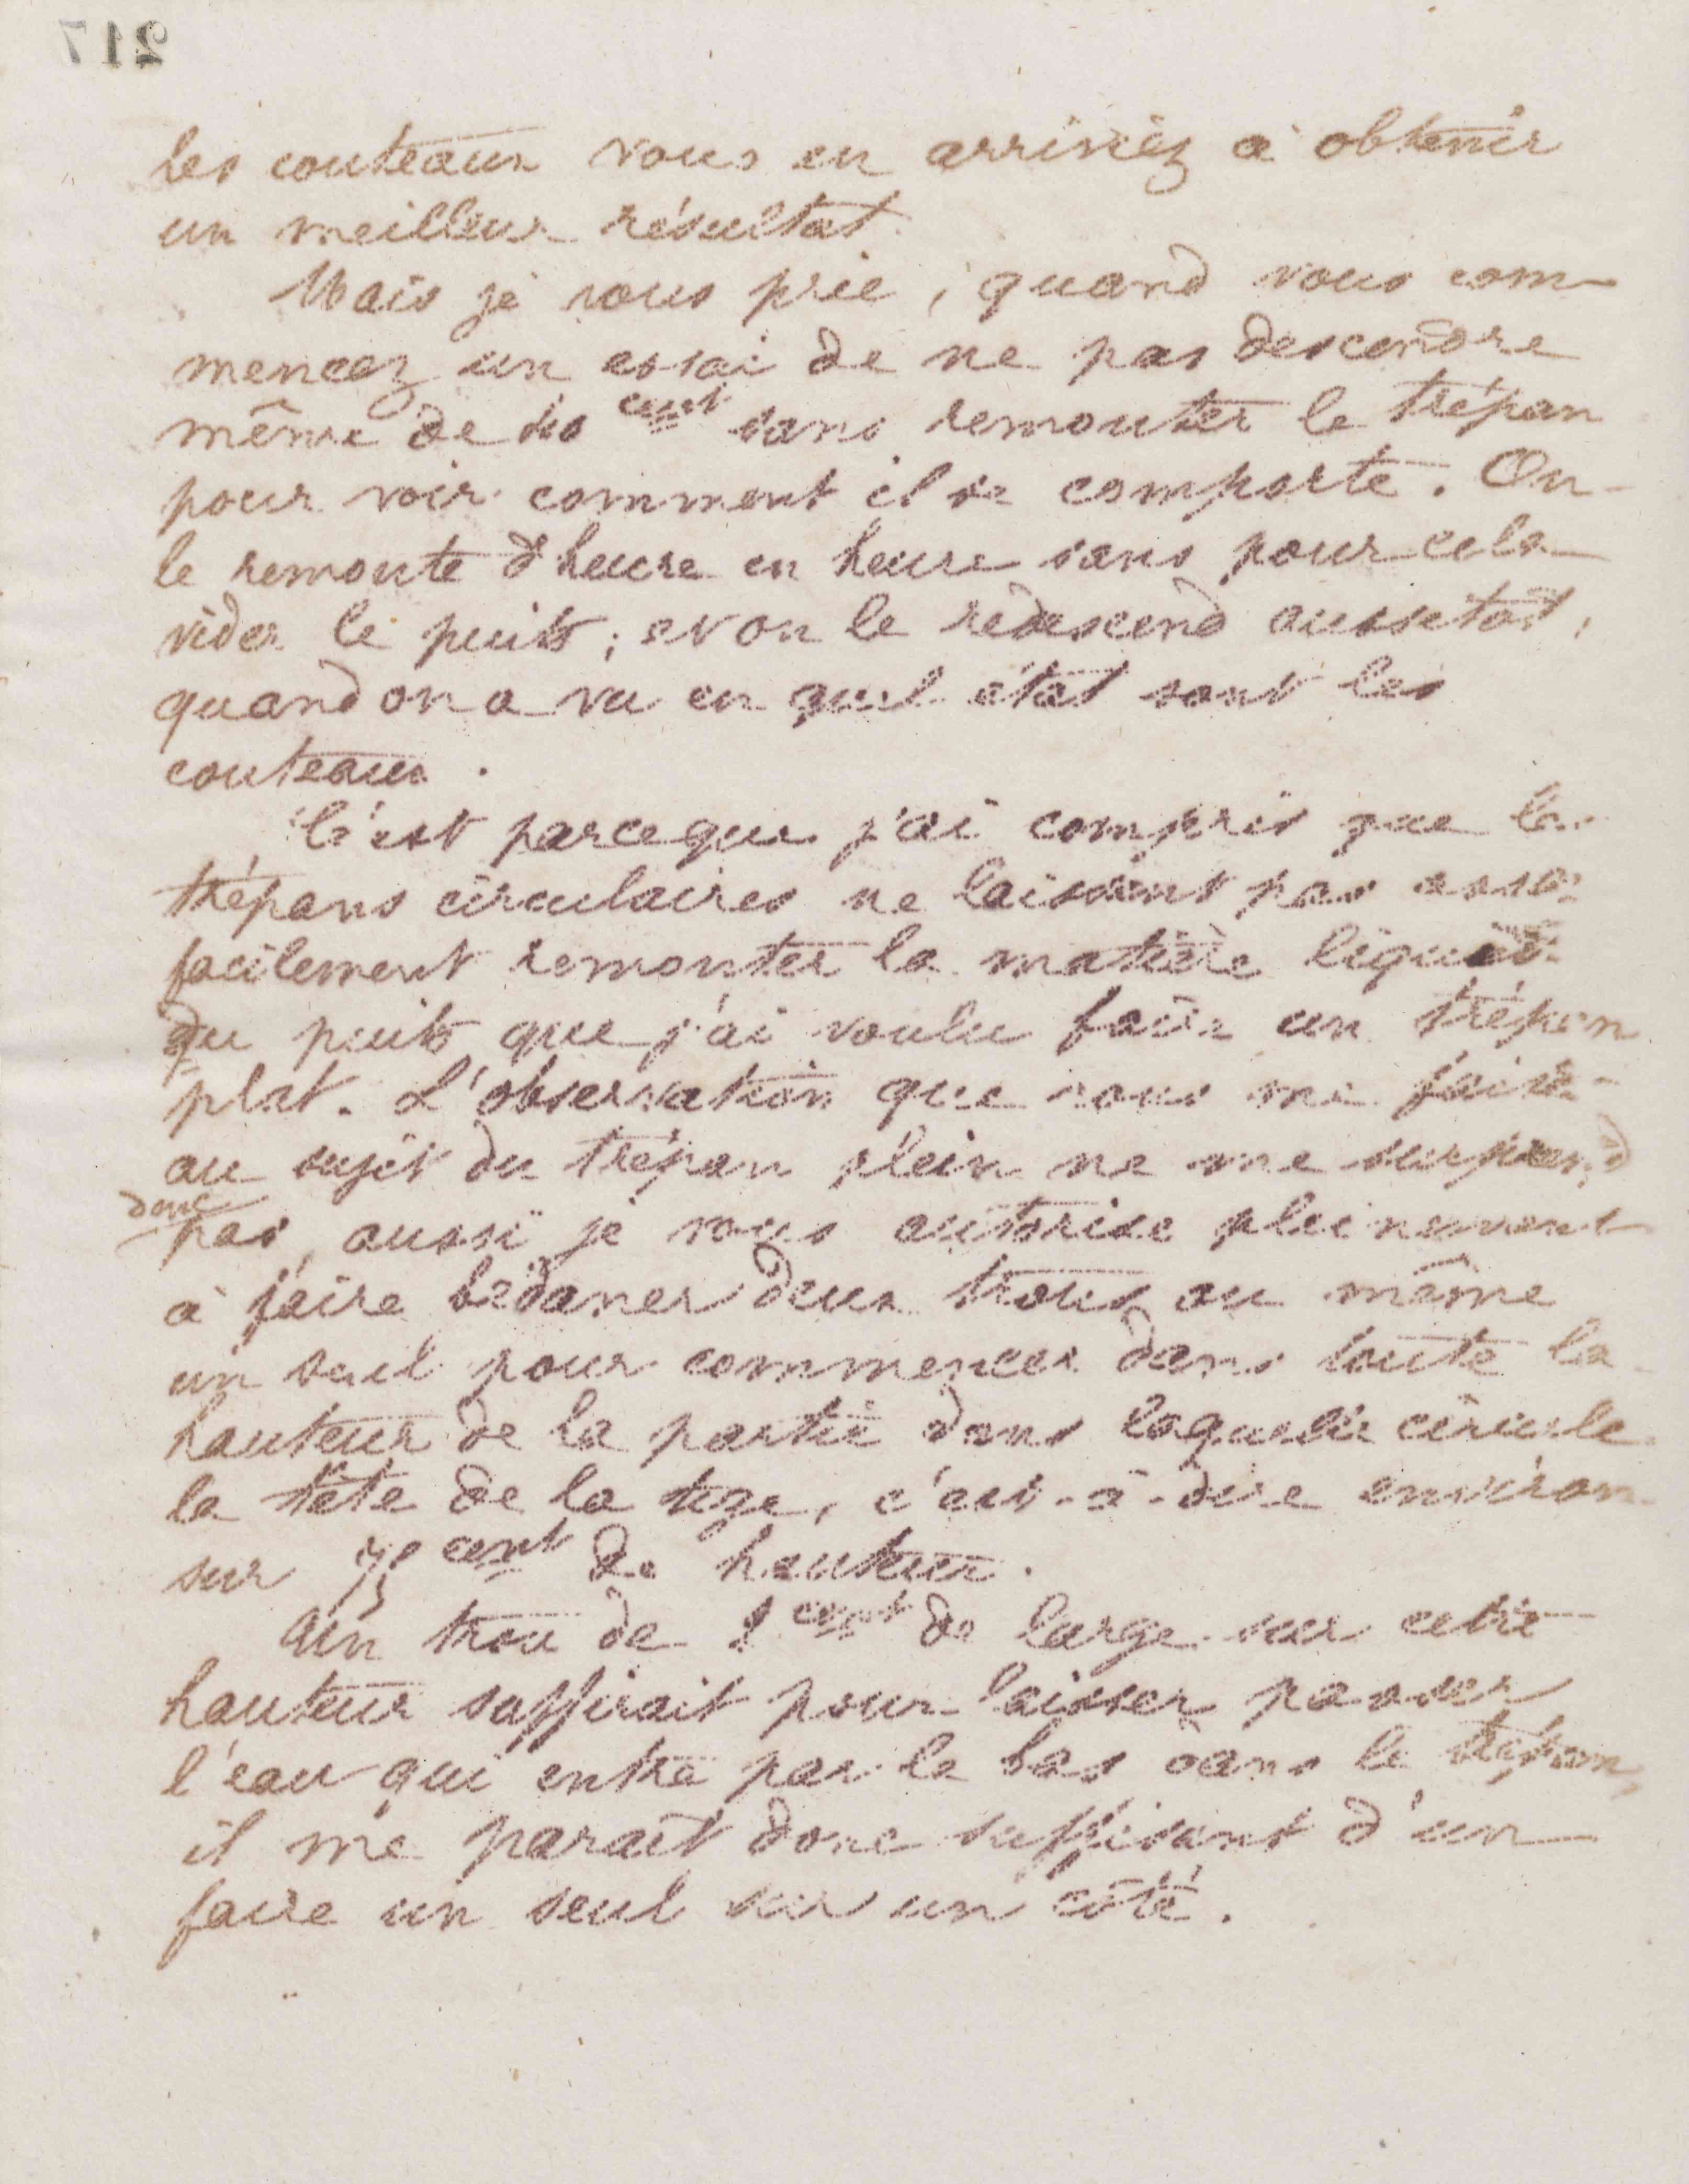 217
les couteaux vous en arriviez à obtenir
un meilleur résultat.
Mais je vous prie, quand vous com-
mencez un essai de ne pas descendre
même de dix cent sans remonter le trépan
pour voir comment il se comporte. On
le remonte d'heure en heure sans pour cela
vider le puits ; et on le redescend aussitôt,
quand on a vu en quel état sont les
couteaux.
C'est parceque j'ai compris que les
trépans circulaires ne laissaient pas assez
facilement remonter la matière liquide
du puits que j'ai voulu faire un trépan
plat. L'observation que vous me faites
au sujet du trépan plein ne me surprend
donc
pas, aussi je vous autorise pleinement
à faire bédaner deux trous ou même
un seul pour commencer dans toute la
hauteur de la partie dans laquelle circule
la tête de la tige, c'est-à-dire environ
sur 75 cent de hauteur.
Un trou de cent de large sur cette
hauteur suffirait pour laisser passer
l'eau qui entre par le bas dans le trépan,
il me paraît donc suffisant d'un
faire un seul sur un côté.